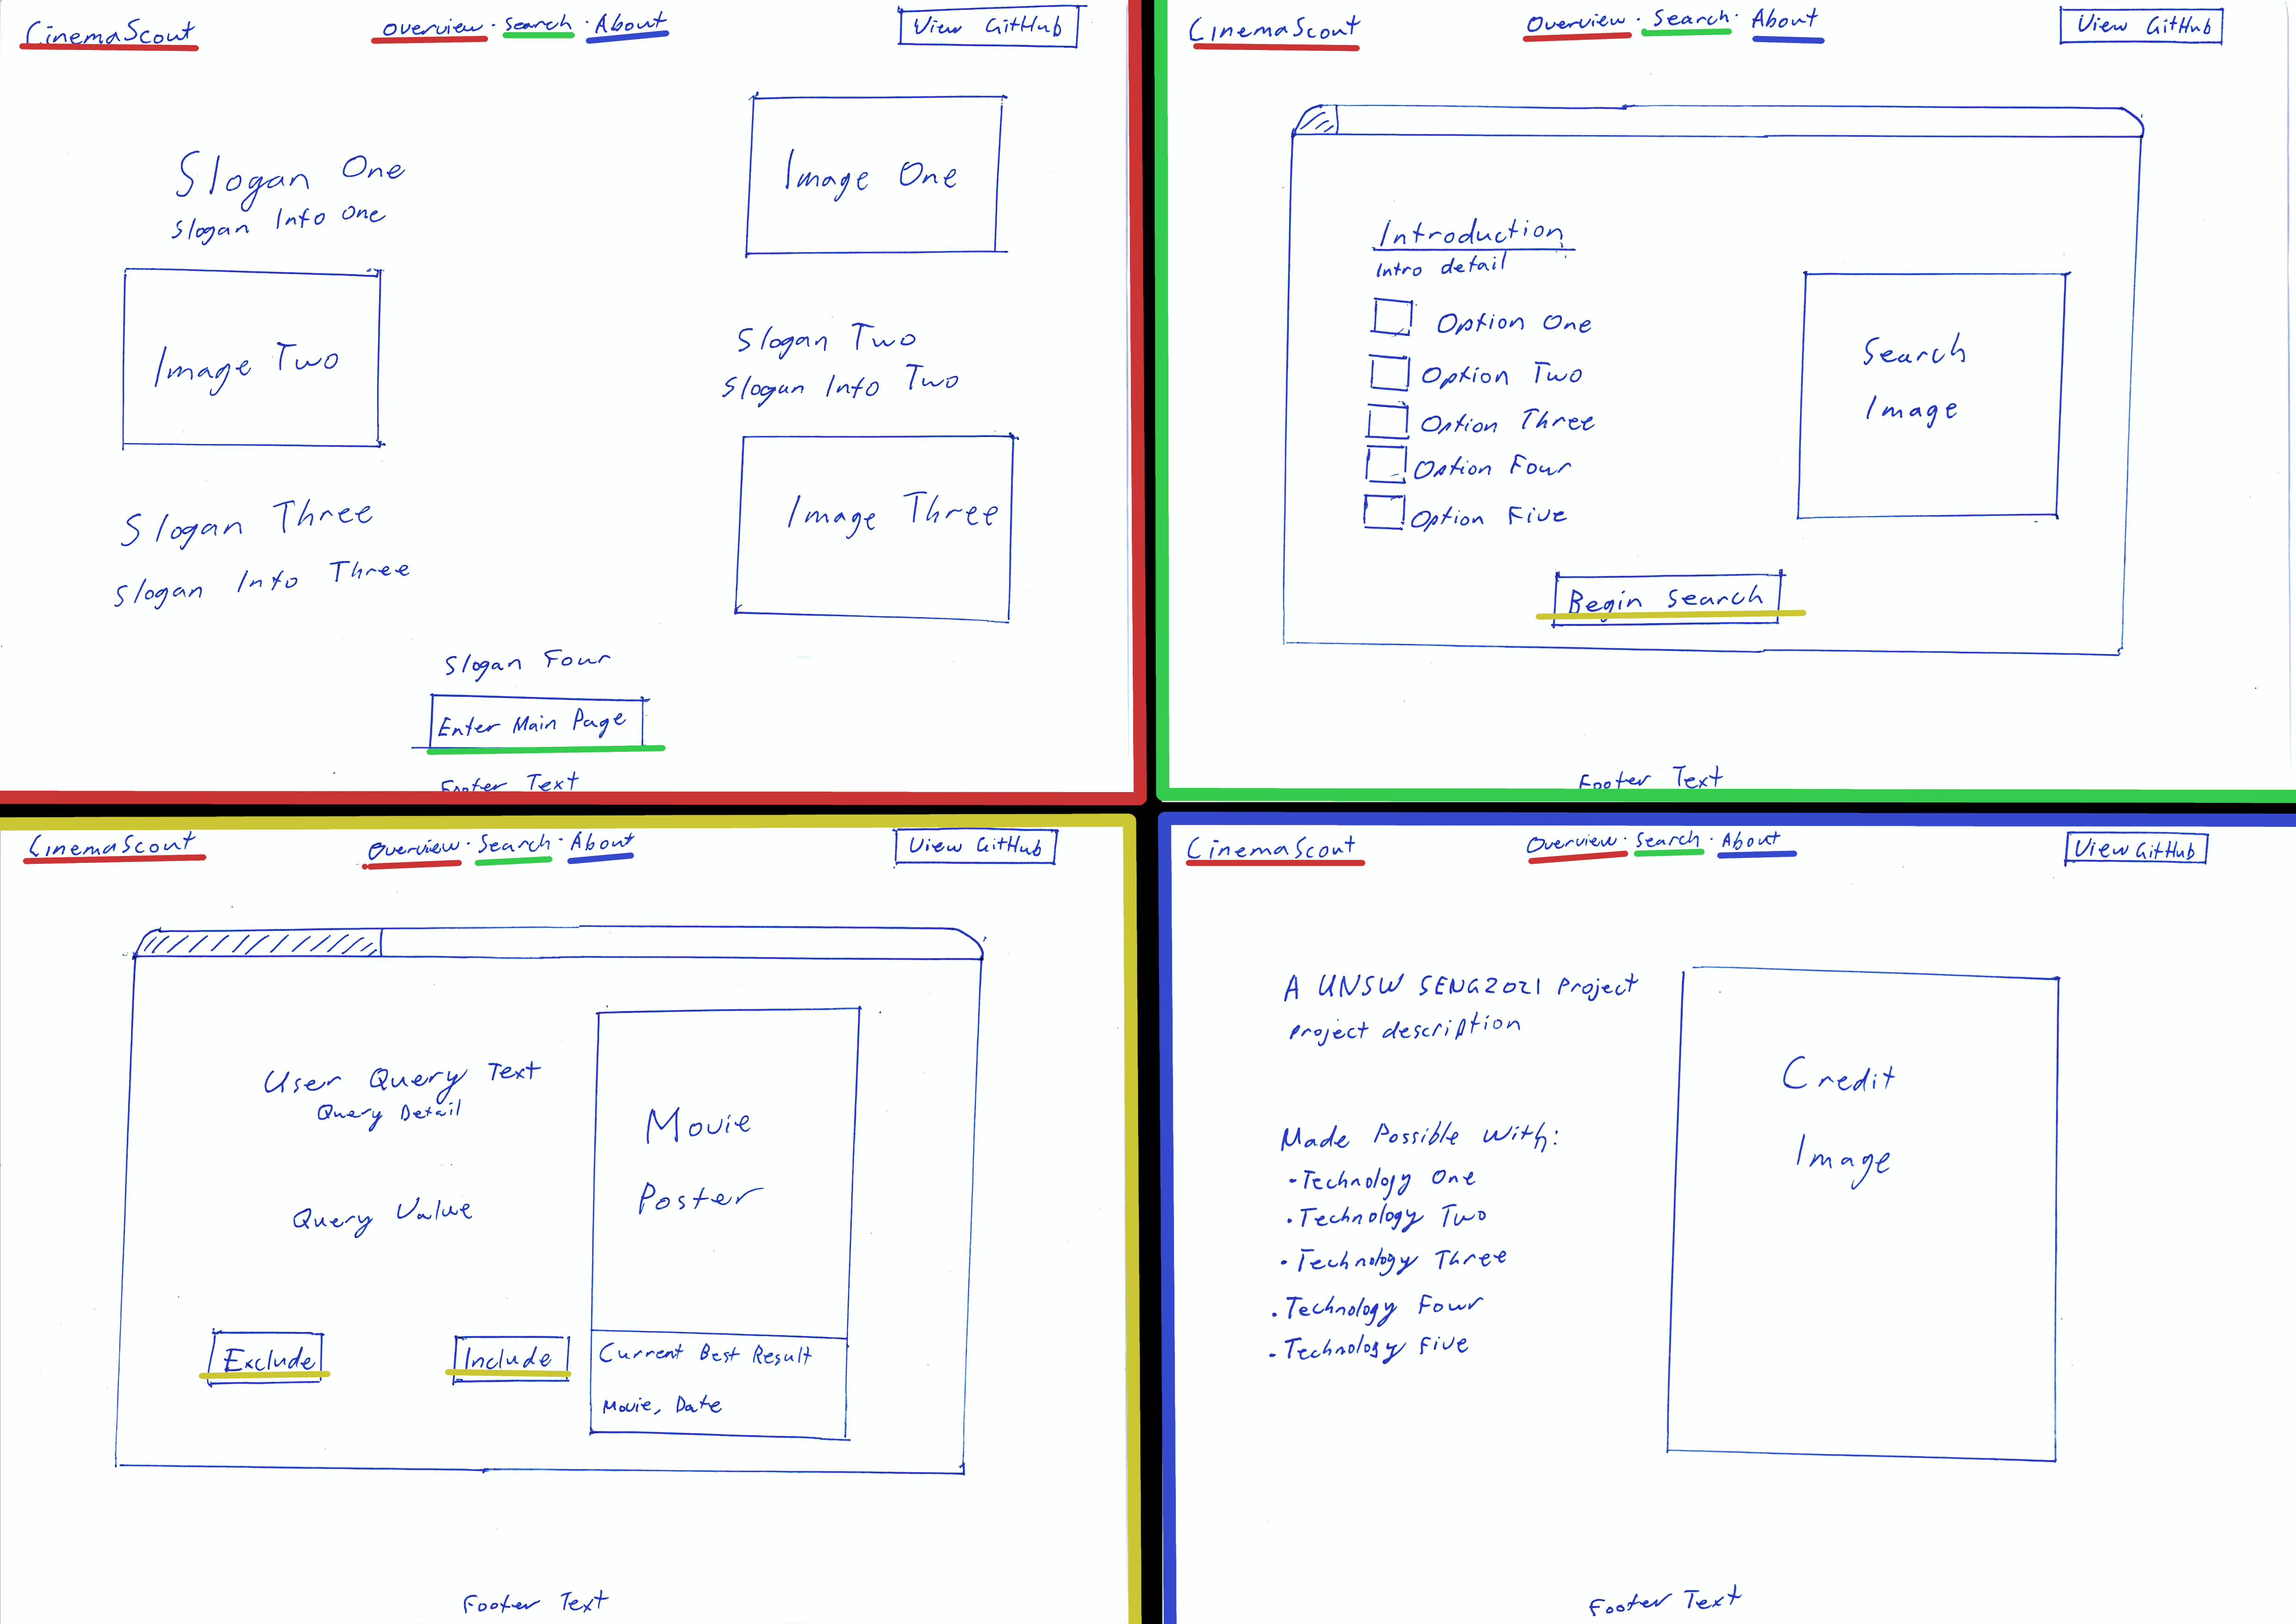 CinemaScout
Overview · Search · About
View GitHub
Slogan One
Slogan Info One
Image One
Image Two
Slogan Two
Slogan Info Two
Slogan Three
Slogan Info Three
Image Three
Slogan Four
Enter Main Page
Footer Text
CinemaScout
Overview · Search · About
View GitHub
Introduction
Intro detail
Option One
Option Two
Option Three
Option Four
Option Five
Search
Image
Begin Search
Footer Text
CinemaScout
Overview · Search · About
View GitHub
User Query Text
Query Detail
Query Value
Exclude
Include
Movie
Poster
Current Best Result
Movie, Date
Footer Text
CinemaScout
Overview · Search · About
View GitHub
A UNSW SENG2021 Project
Project description
Made Possible With:
· Technology One
· Technology Two
· Technology Three
· Technology Four
· Technology Five
Credit
Image
Footer Text